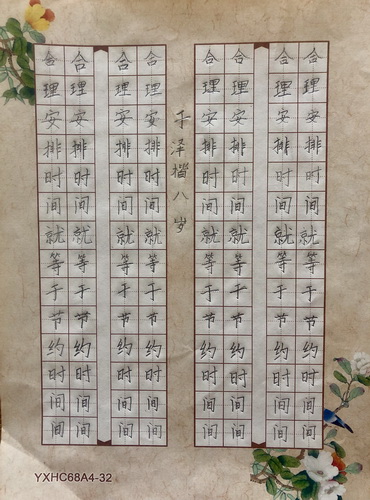 合理安排时间就等于节约时间间
合理安排时间就等于节约时间间
合理安排时间就等于节约时间间
合理安排时间就等于节约时间间
于泽楷八岁
合理安排时间就等于节约时间间
合理安排时间就等于节约时间间
合理安排时间就等于节约时间间
合理安排时间就等于节约时间间
YXHC68A4-32